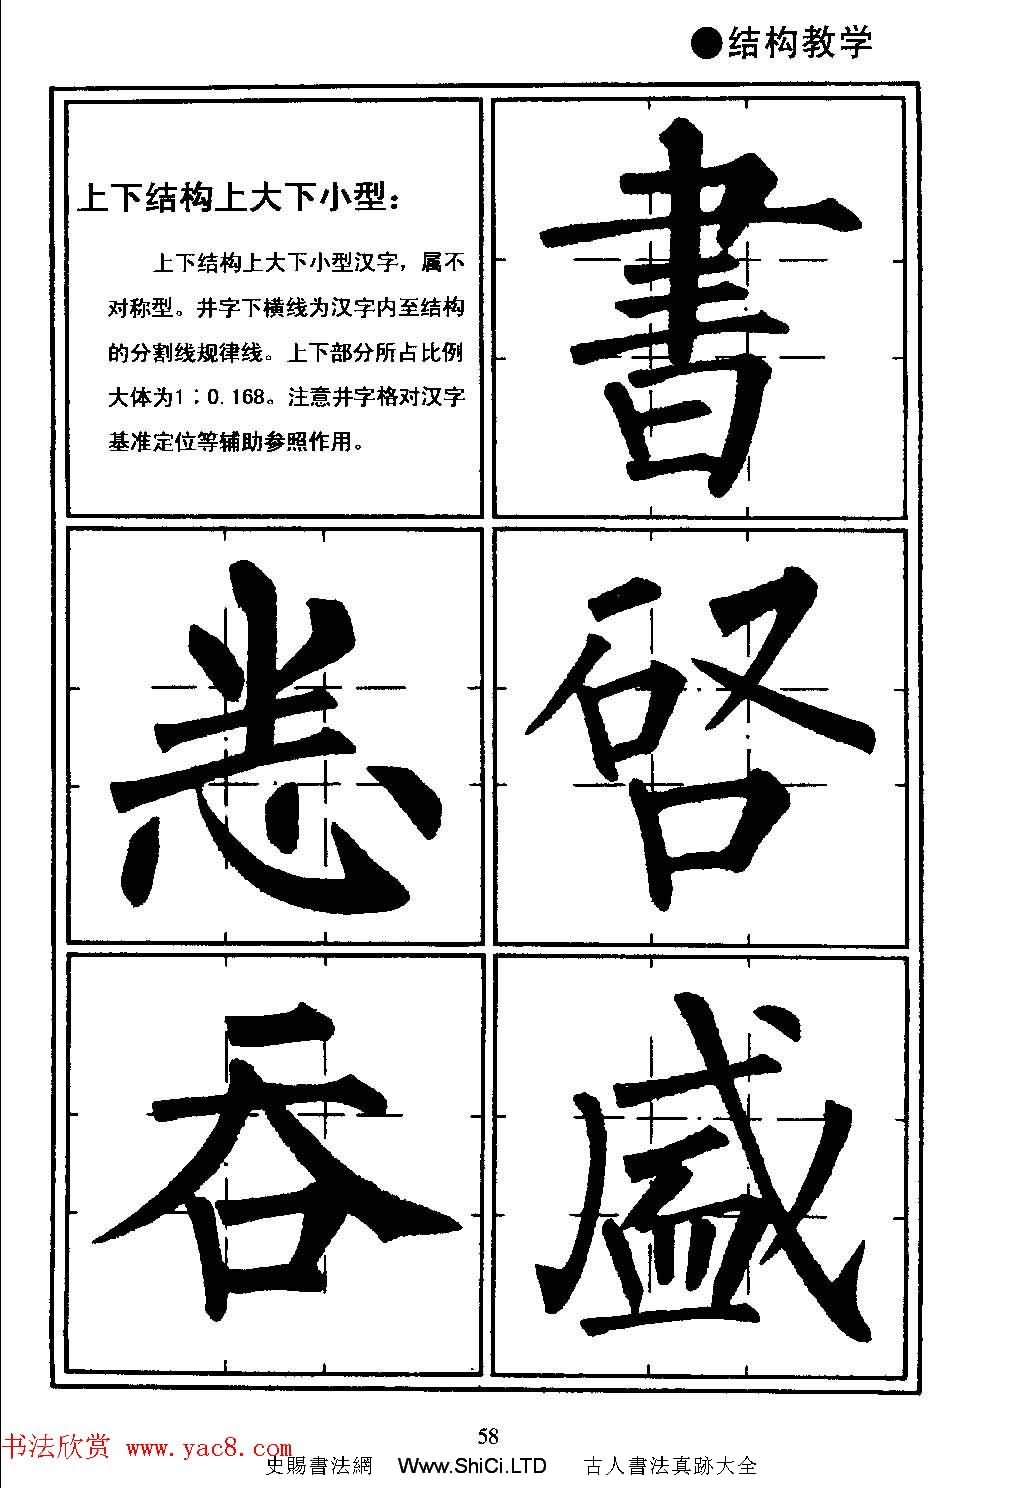 ●结构教学
上下结构上大下小型：
上下结构上大下小型汉字，属不
对称型。井字下横线为汉字内至结构
的分割线规律线。上下部分所占比例
大体为1：0.168。注意井字格对汉字
基准定位等辅助参照作用。
書
啓
吞
盛
58
书法欣赏 www.yac8.com
史賜書法網 Www.ShiCi.LTD 古人書法真跡大全